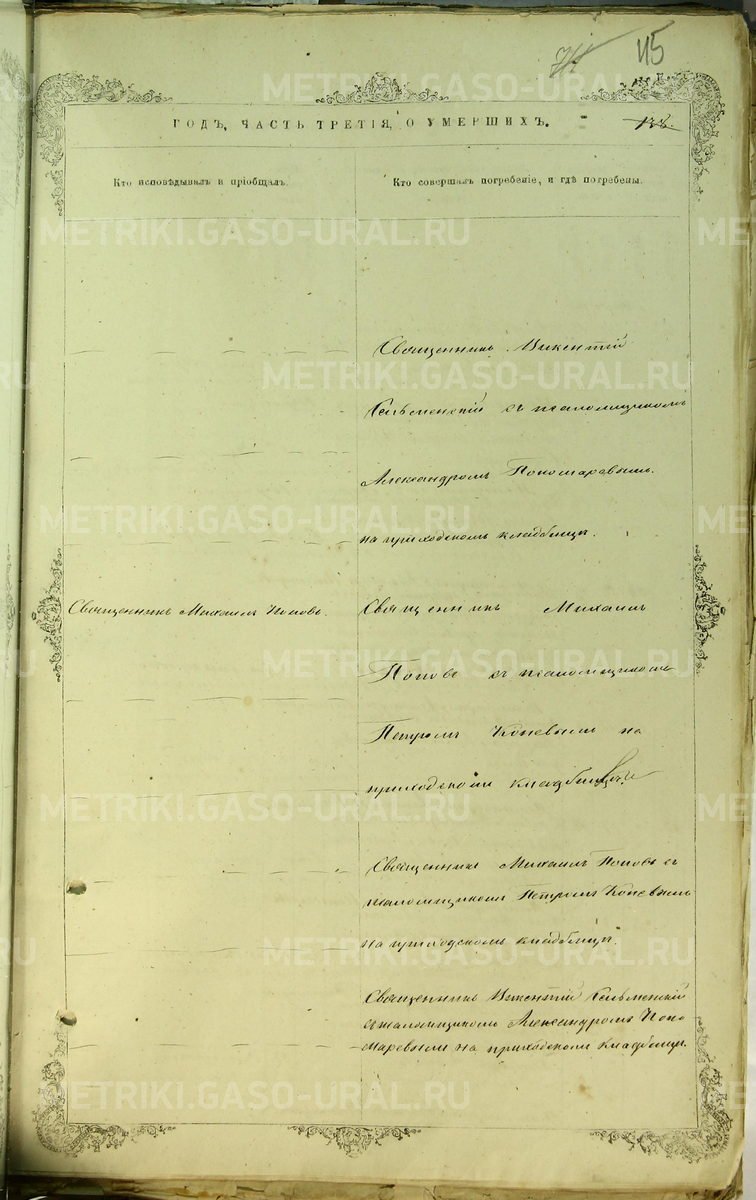 45
ГОДЪ, ЧАСТЬ ТРЕТІЯ, О УМЕРШИХЪ.
Кто исповѣдывалъ и пріобщалъ.
Кто совершалъ погребеніе, и гдѣ погребены.
Священникъ Викентій
Сельменскій съ псаломщикомъ
Александромъ Пономаревымъ
на приходскомъ кладбищѣ.
Священникъ Михаилъ Поповъ.
Священникъ Михаилъ
Поповъ съ псаломщикомъ
Петромъ Коневымъ на
приходскомъ кладбищѣ
Священникъ Михаилъ Поповъ съ
псаломщикомъ Петромъ Коневымъ
на приходскомъ кладбищѣ.
Священникъ Викентій Сельменскій
съ псаломщикомъ Александромъ Поно
маревымъ на приходскомъ кладбищѣ.
METRIKI.GASO-URAL.RU